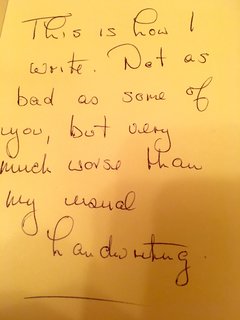 This is how I
write. Not as
bad as some of
you, but very
much worse than
my usual
handwriting.